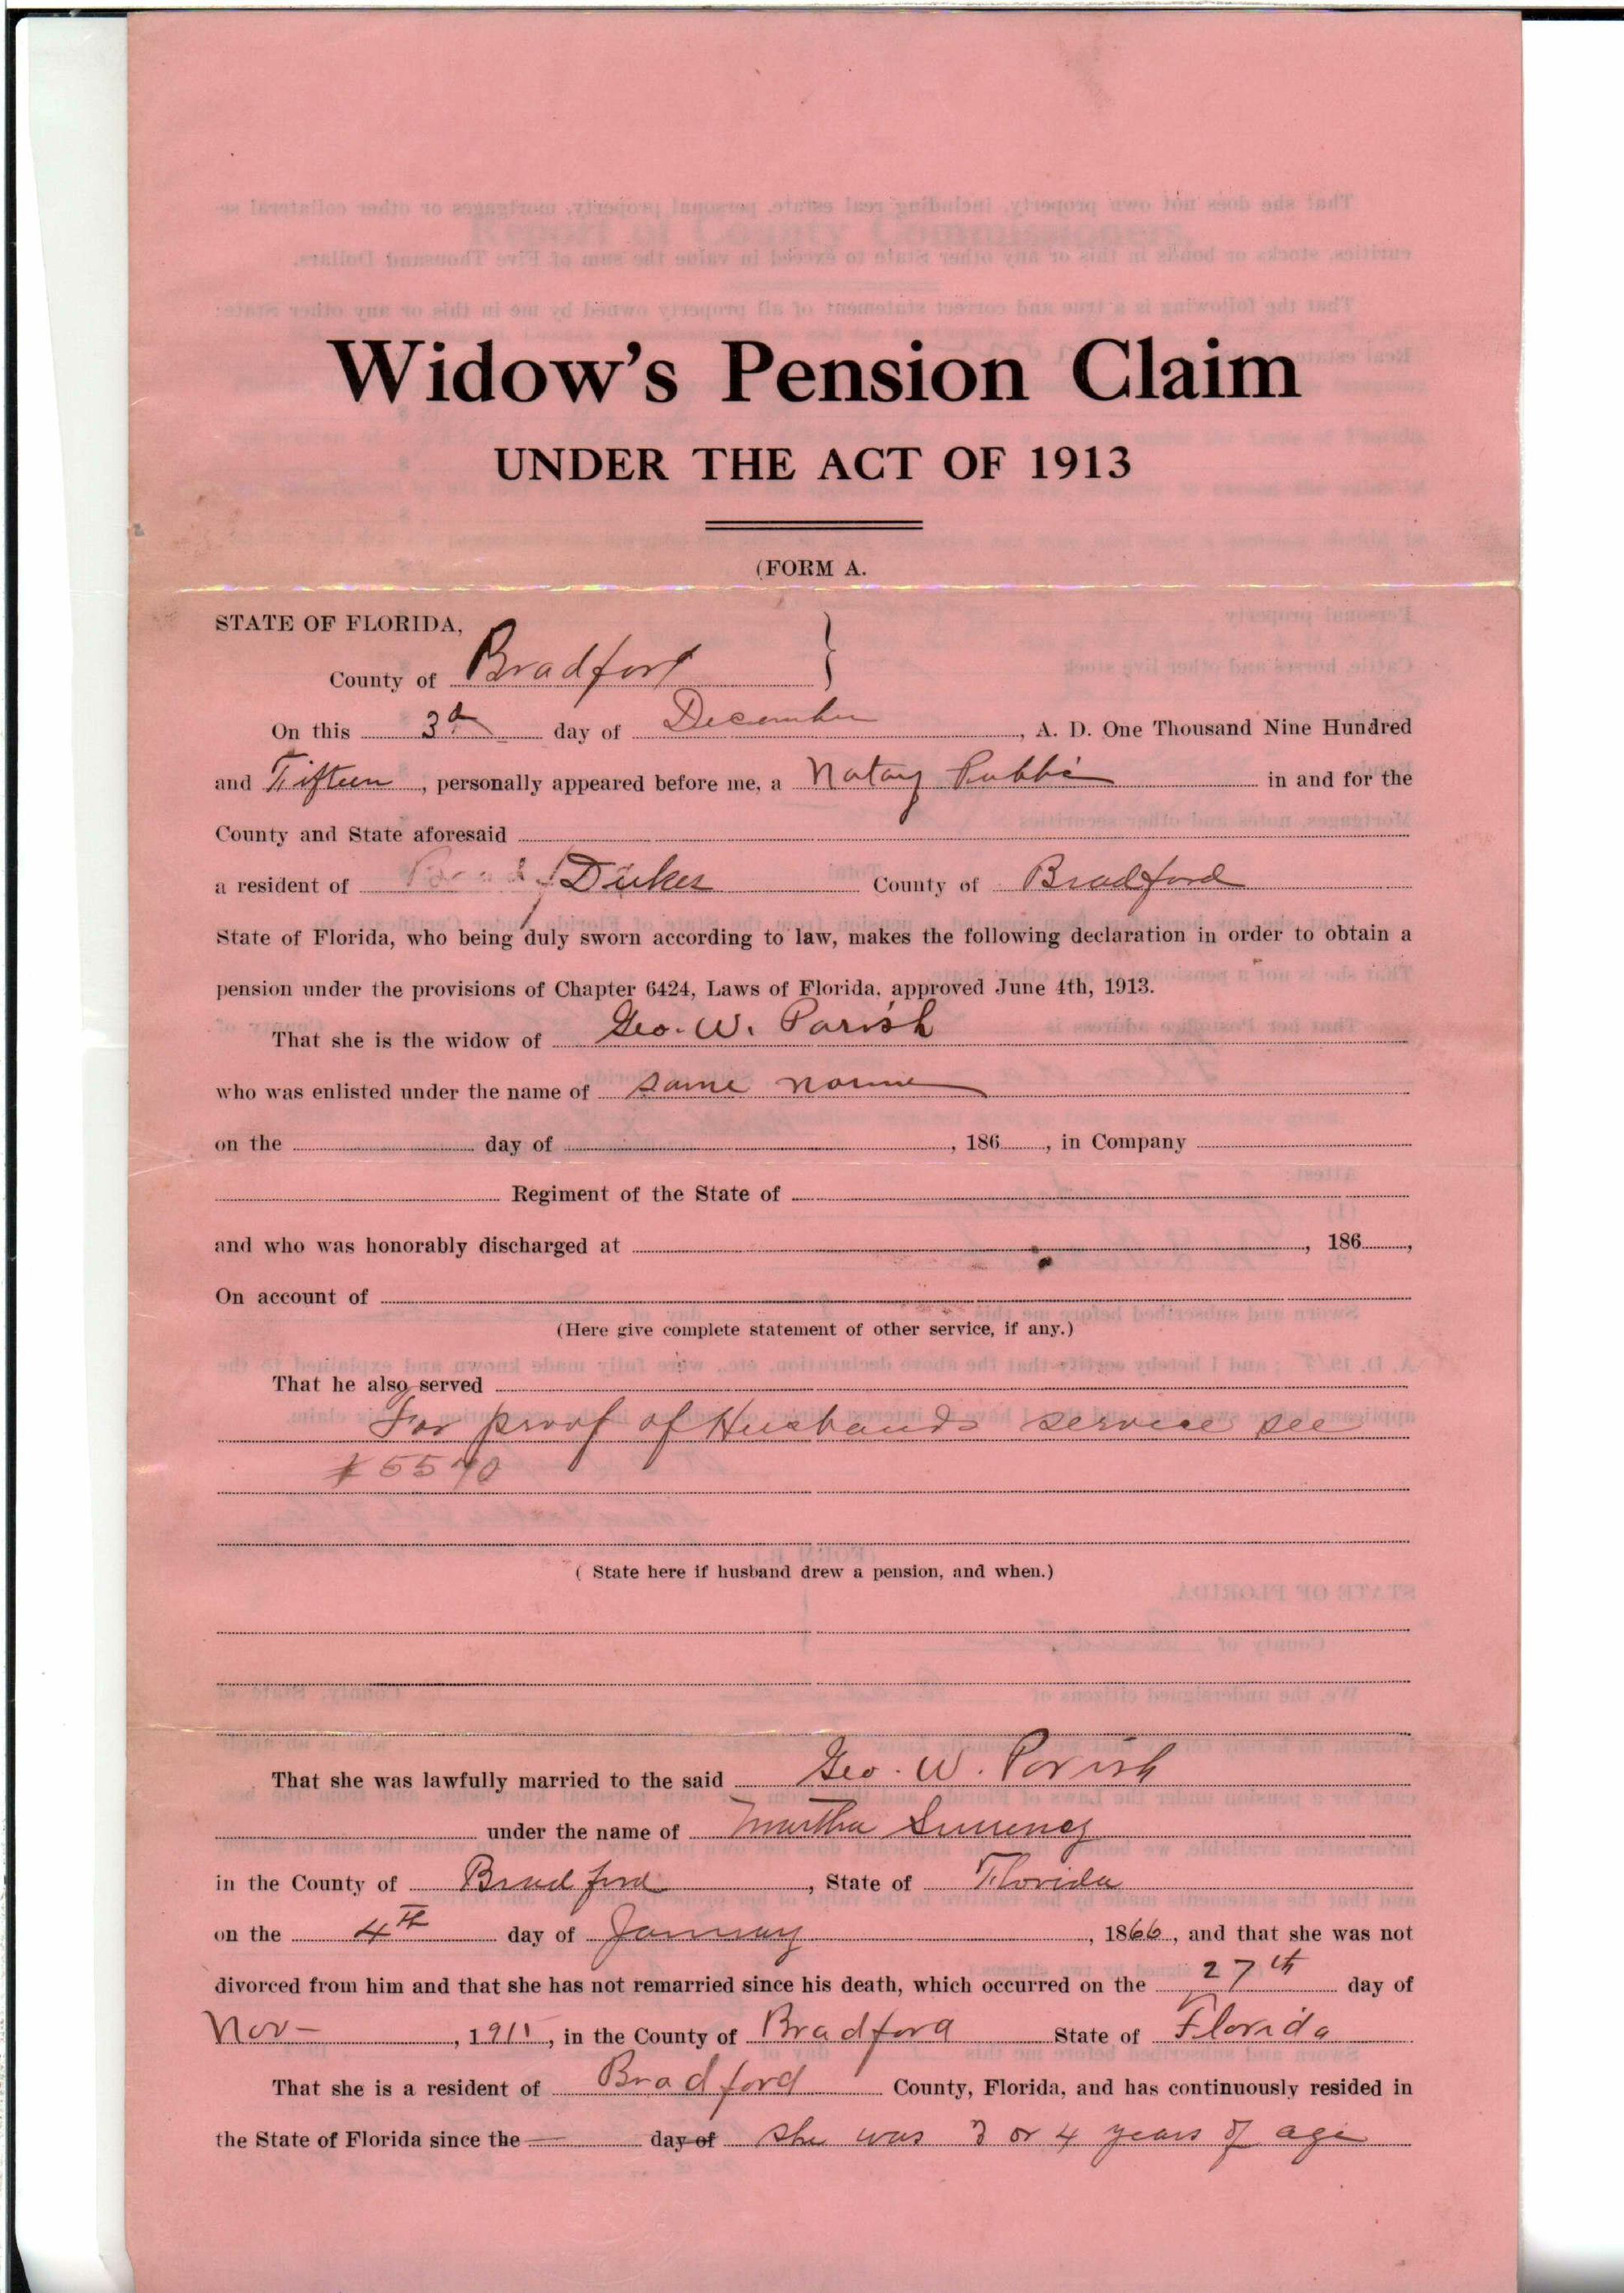 Widow's Pension Claim
UNDER THE ACT OF 1913
(FORM A.
STATE OF FLORIDA,
County of Bradford }
On this 3d day of December, A. D. One Thousand Nine Hundred
and Fifteen, personally appeared before me, a Notary Public in and for the
County and State aforesaid
a resident of Dukes County of Bradford
State of Florida, who being duly sworn according to law, makes the following declaration in order to obtain a
pension under the provisions of Chapter 6424, Laws of Florida, approved June 4th, 1913.
That she is the widow of Geo. W. Parish
who was enlisted under the name of same name
on the day of , 186 , in Company
Regiment of the State of
and who was honorably discharged at , 186 ,
On account of
(Here give complete statement of other service, if any.)
That he also served
For proof of Husbands service see
# 5570
( State here if husband drew a pension, and when.)
That she was lawfully married to the said Geo. W. Parish
under the name of Martha
in the County of Bradford, State of Florida
on the 4th day of January, 1866, and that she was not
divorced from him and that she has not remarried since his death, which occurred on the 27th day of
Nov-, 1911, in the County of Bradford State of Florida
That she is a resident of Bradford County, Florida, and has continuously resided in
the State of Florida since the — day of she was 3 or 4 years of age